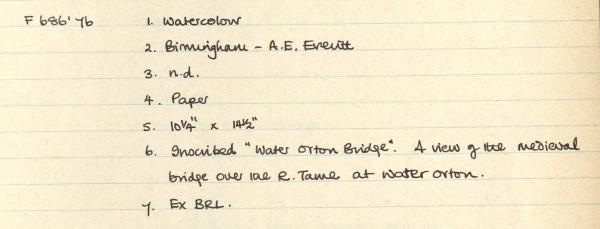 F 686'76 1. Watercolour
2. Birmingham - A.E. Everitt
3. n.d.
4. Paper
5. 10¼" x 14½"
6. Inscribed "Water Orton Bridge". A view of the medieval
bridge over the R. Tame at Water Orton.
7. Ex BRL.